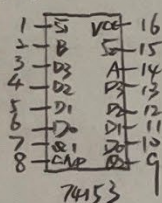 1 S̅1 VCC 16
2 B S̅2 15
3 D3 A 14
4 D2 D3 13
5 D1 D2 12
6 D0 D1 11
7 Q1 D0 10
8 GND Q2 9
74153